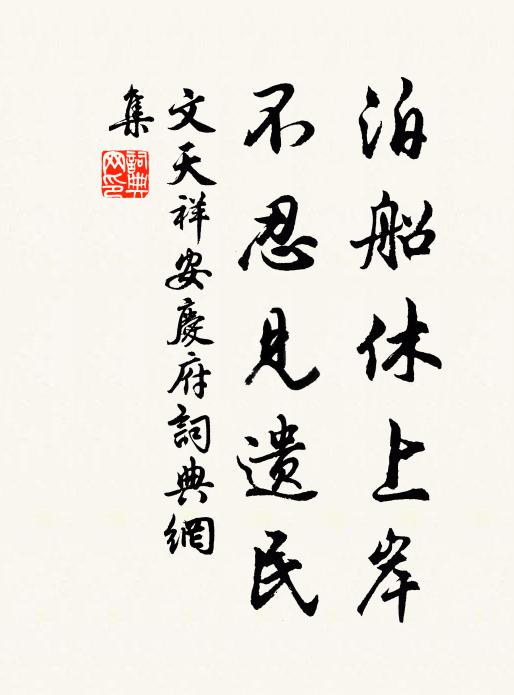 泊船休上岸
不忍見遺民
文天祥安慶府詞典網
集
詞典
网印